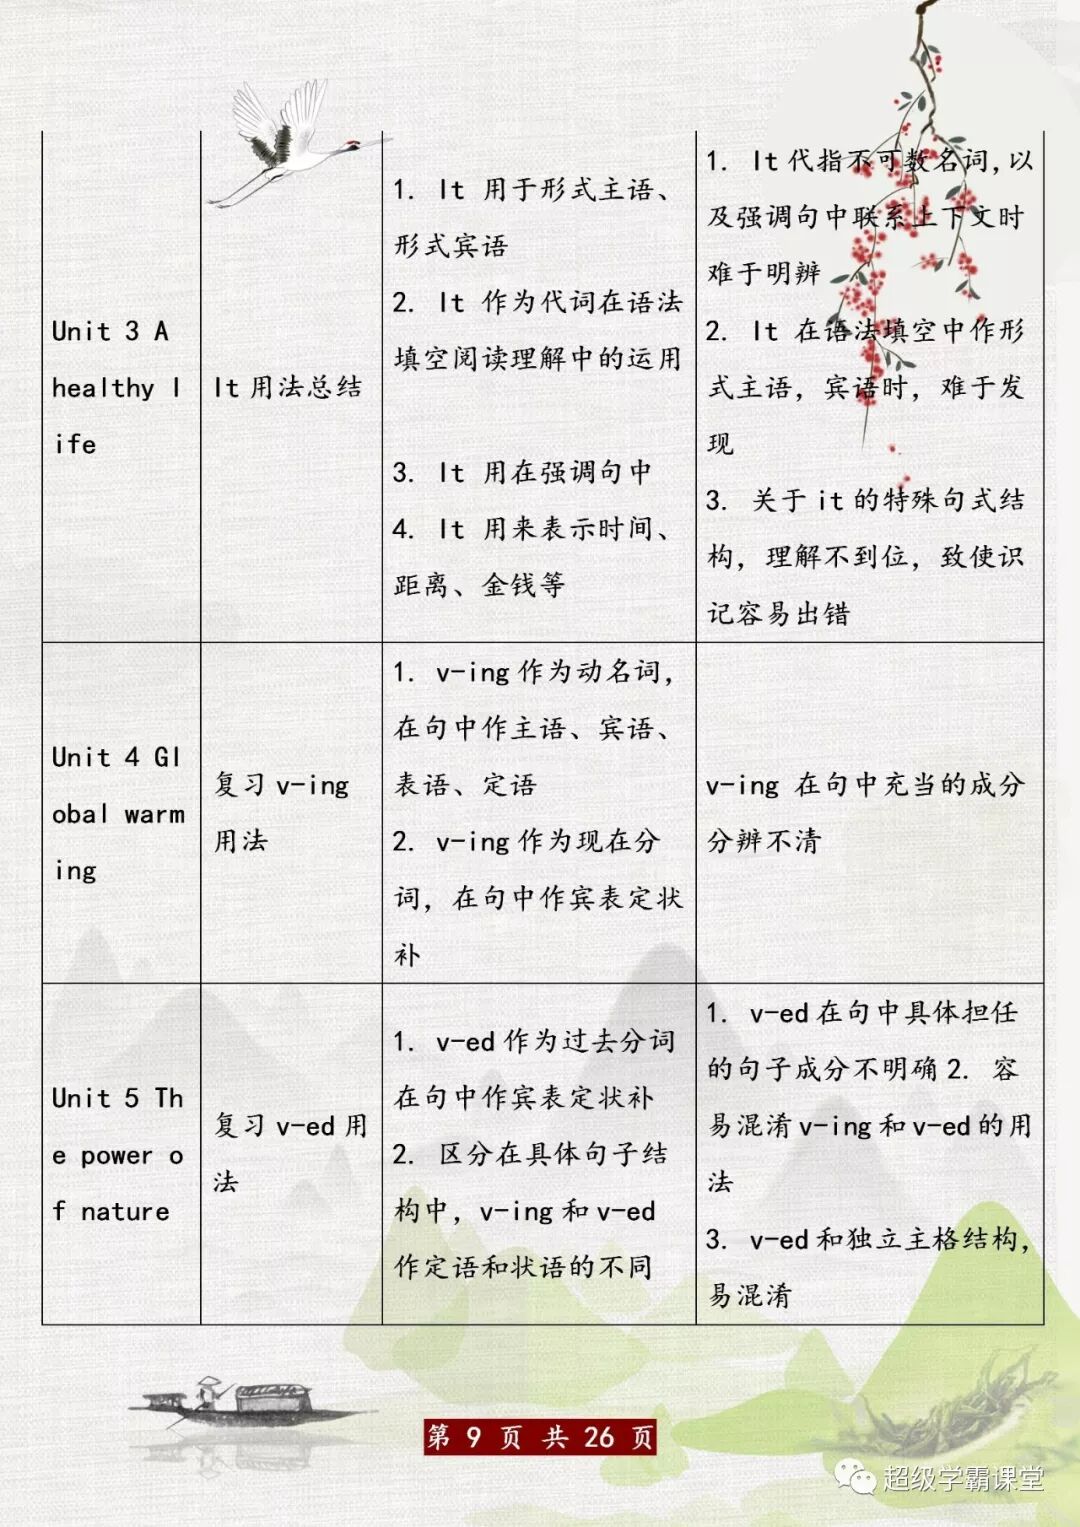 Unit 3 A
healthy l
ife
It用法总结
1. It 用于形式主语、
形式宾语
2. It 作为代词在语法
填空阅读理解中的运用
3. It 用在强调句中
4. It 用来表示时间、
距离、金钱等
1. It代指不可数名词,以
及强调句中联系上下文时
难于明辨
2. It 在语法填空中作形
式主语，宾语时，难于发
现
3. 关于it的特殊句式结
构，理解不到位，致使识
记容易出错
Unit 4 Gl
obal warm
ing
复习v-ing
用法
1. v-ing作为动名词，
在句中作主语、宾语、
表语、定语
2. v-ing作为现在分
词，在句中作宾表定状
补
v-ing 在句中充当的成分
分辨不清
Unit 5 Th
e power o
f nature
复习v-ed用
法
1. v-ed作为过去分词
在句中作宾表定状补
2. 区分在具体句子结
构中，v-ing和v-ed
作定语和状语的不同
1. v-ed在句中具体担任
的句子成分不明确2. 容
易混淆v-ing和v-ed的用
法
3. v-ed和独立主格结构，
易混淆
第 9 页 共 26 页
超级学霸课堂